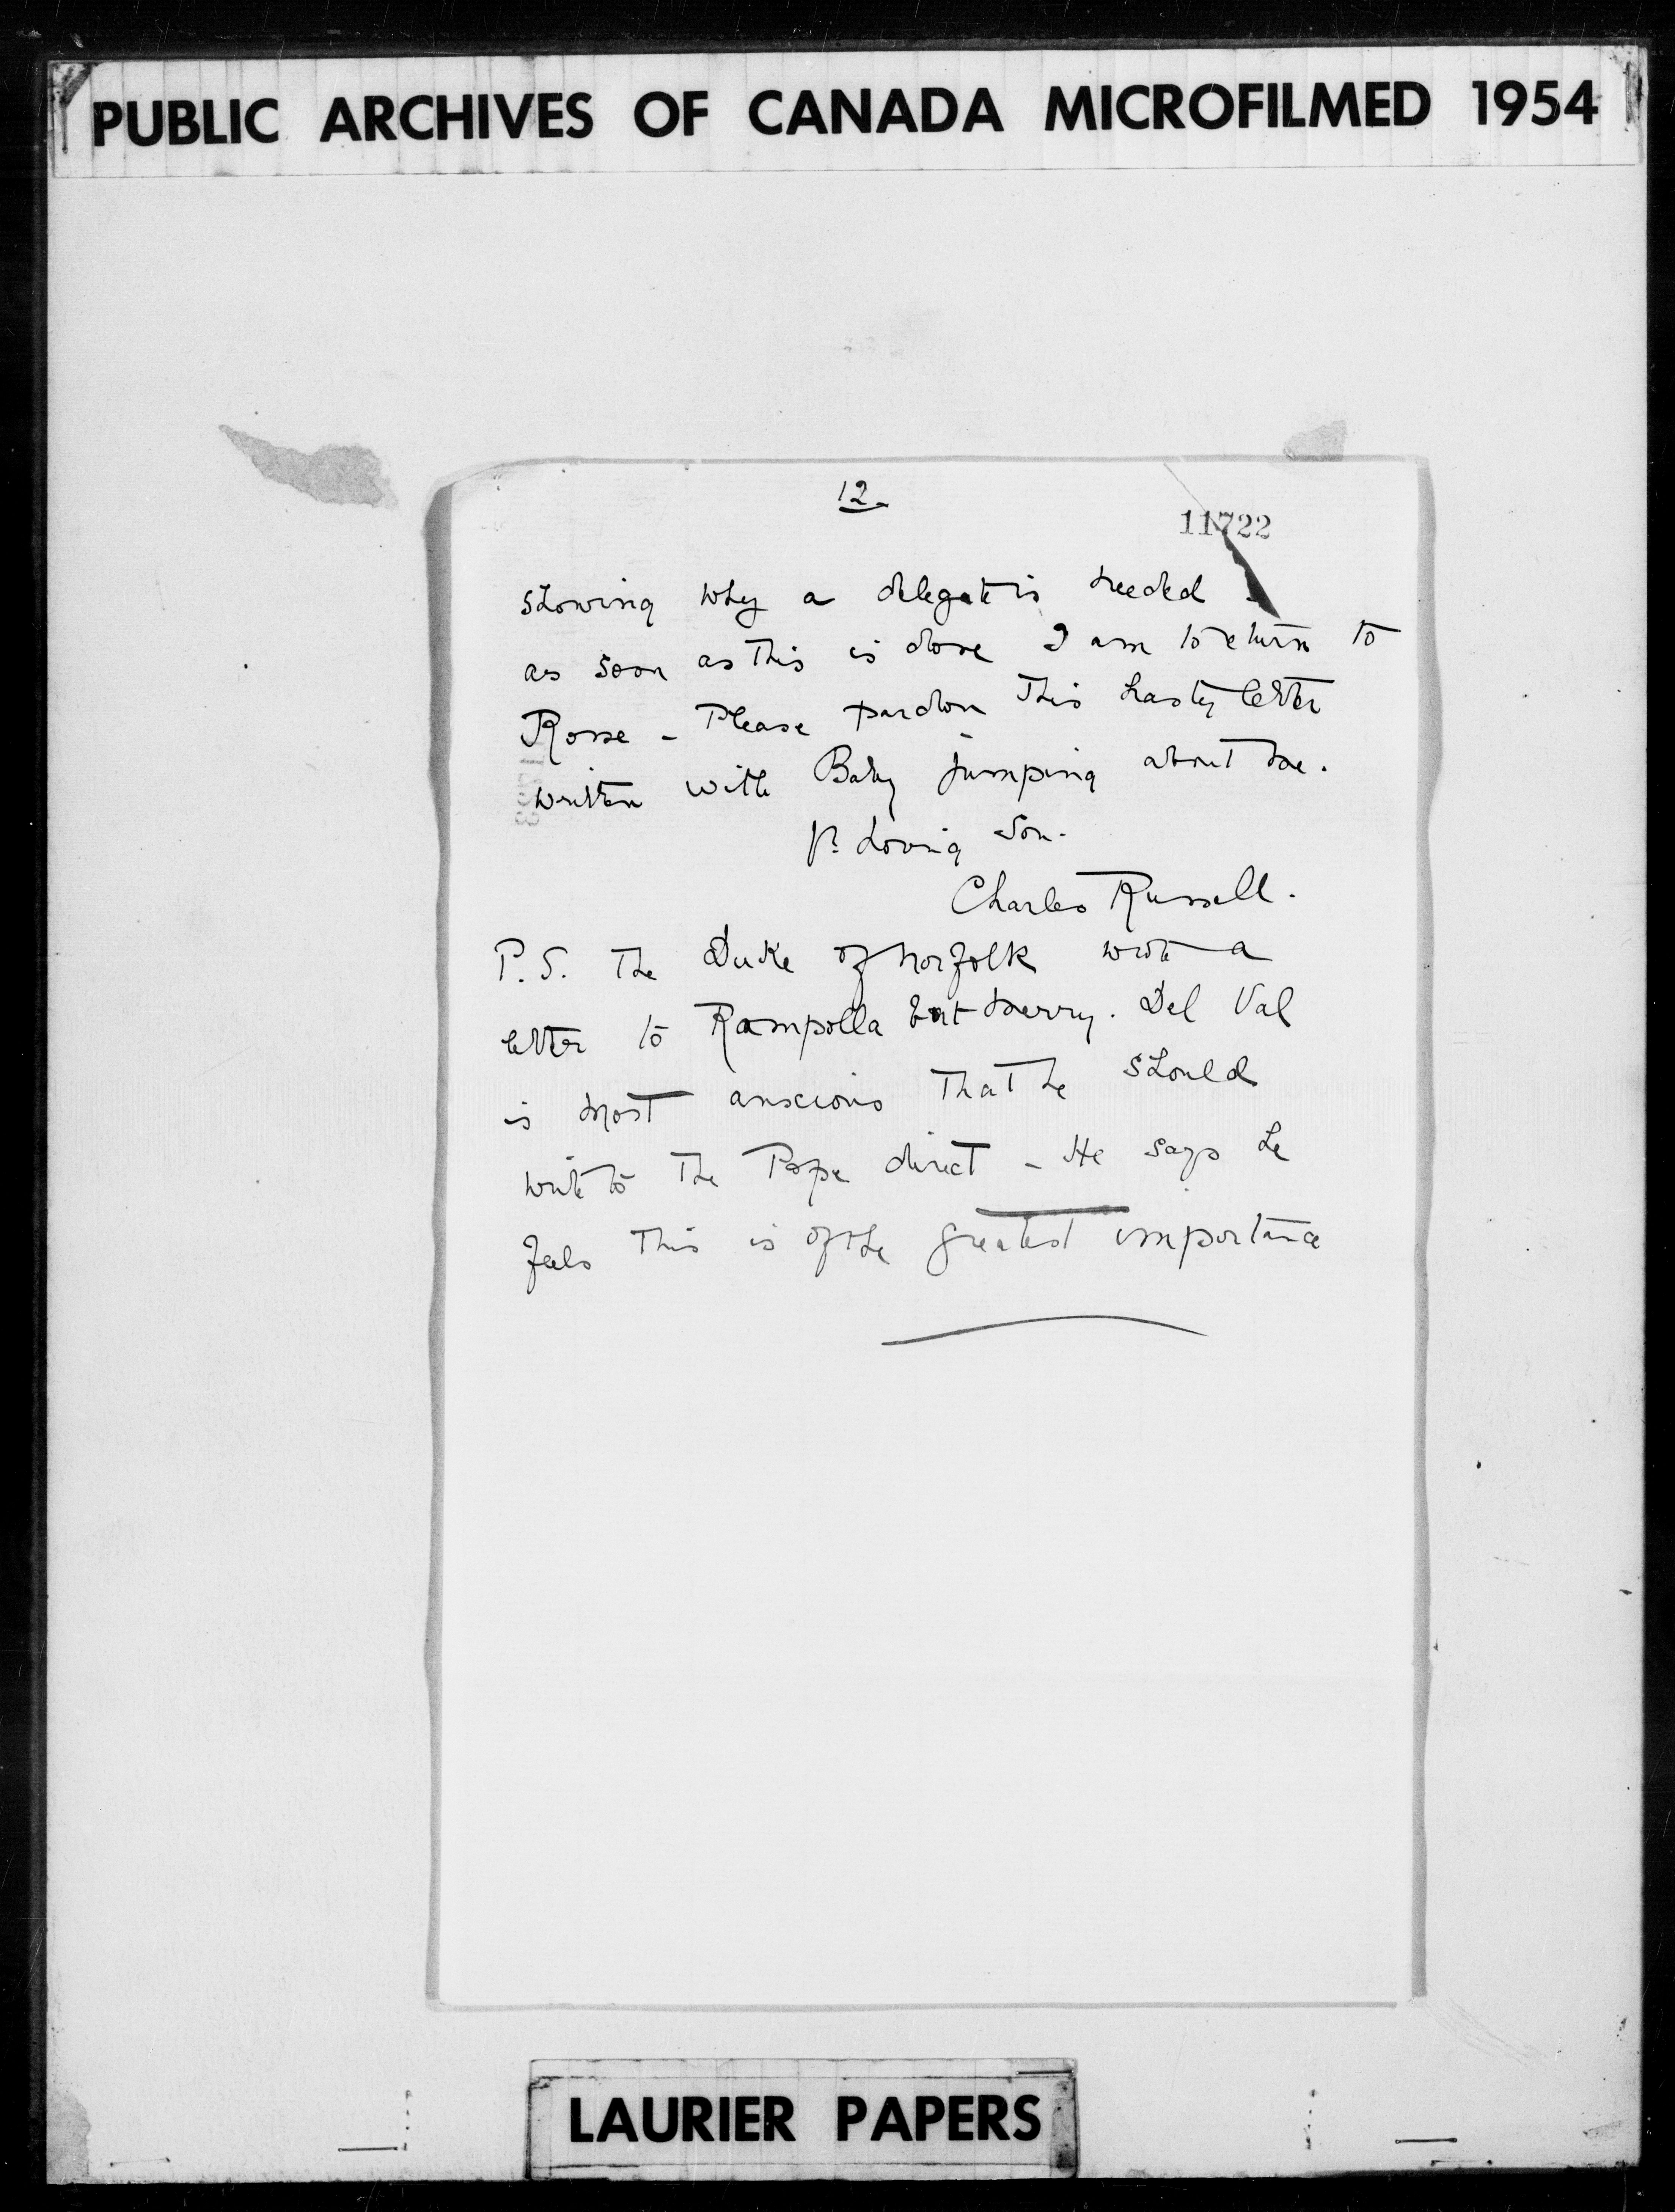 PUBLIC ARCHIVES OF CANADA MICROFILMED 1954
12.
11722
showing why a delegate is needed -
as soon as this is done I am to return to
Rome - Please pardon this hasty letter
written with Baby jumping about me.
Yr. Loving Son.
Charles Russell.
P.S. The Duke of Norfolk wrote a
letter to Rampolla but Merry. Del Val
is most anxious that he should
write to the Pope direct - He says he
feels this is of the greatest importance
LAURIER PAPERS